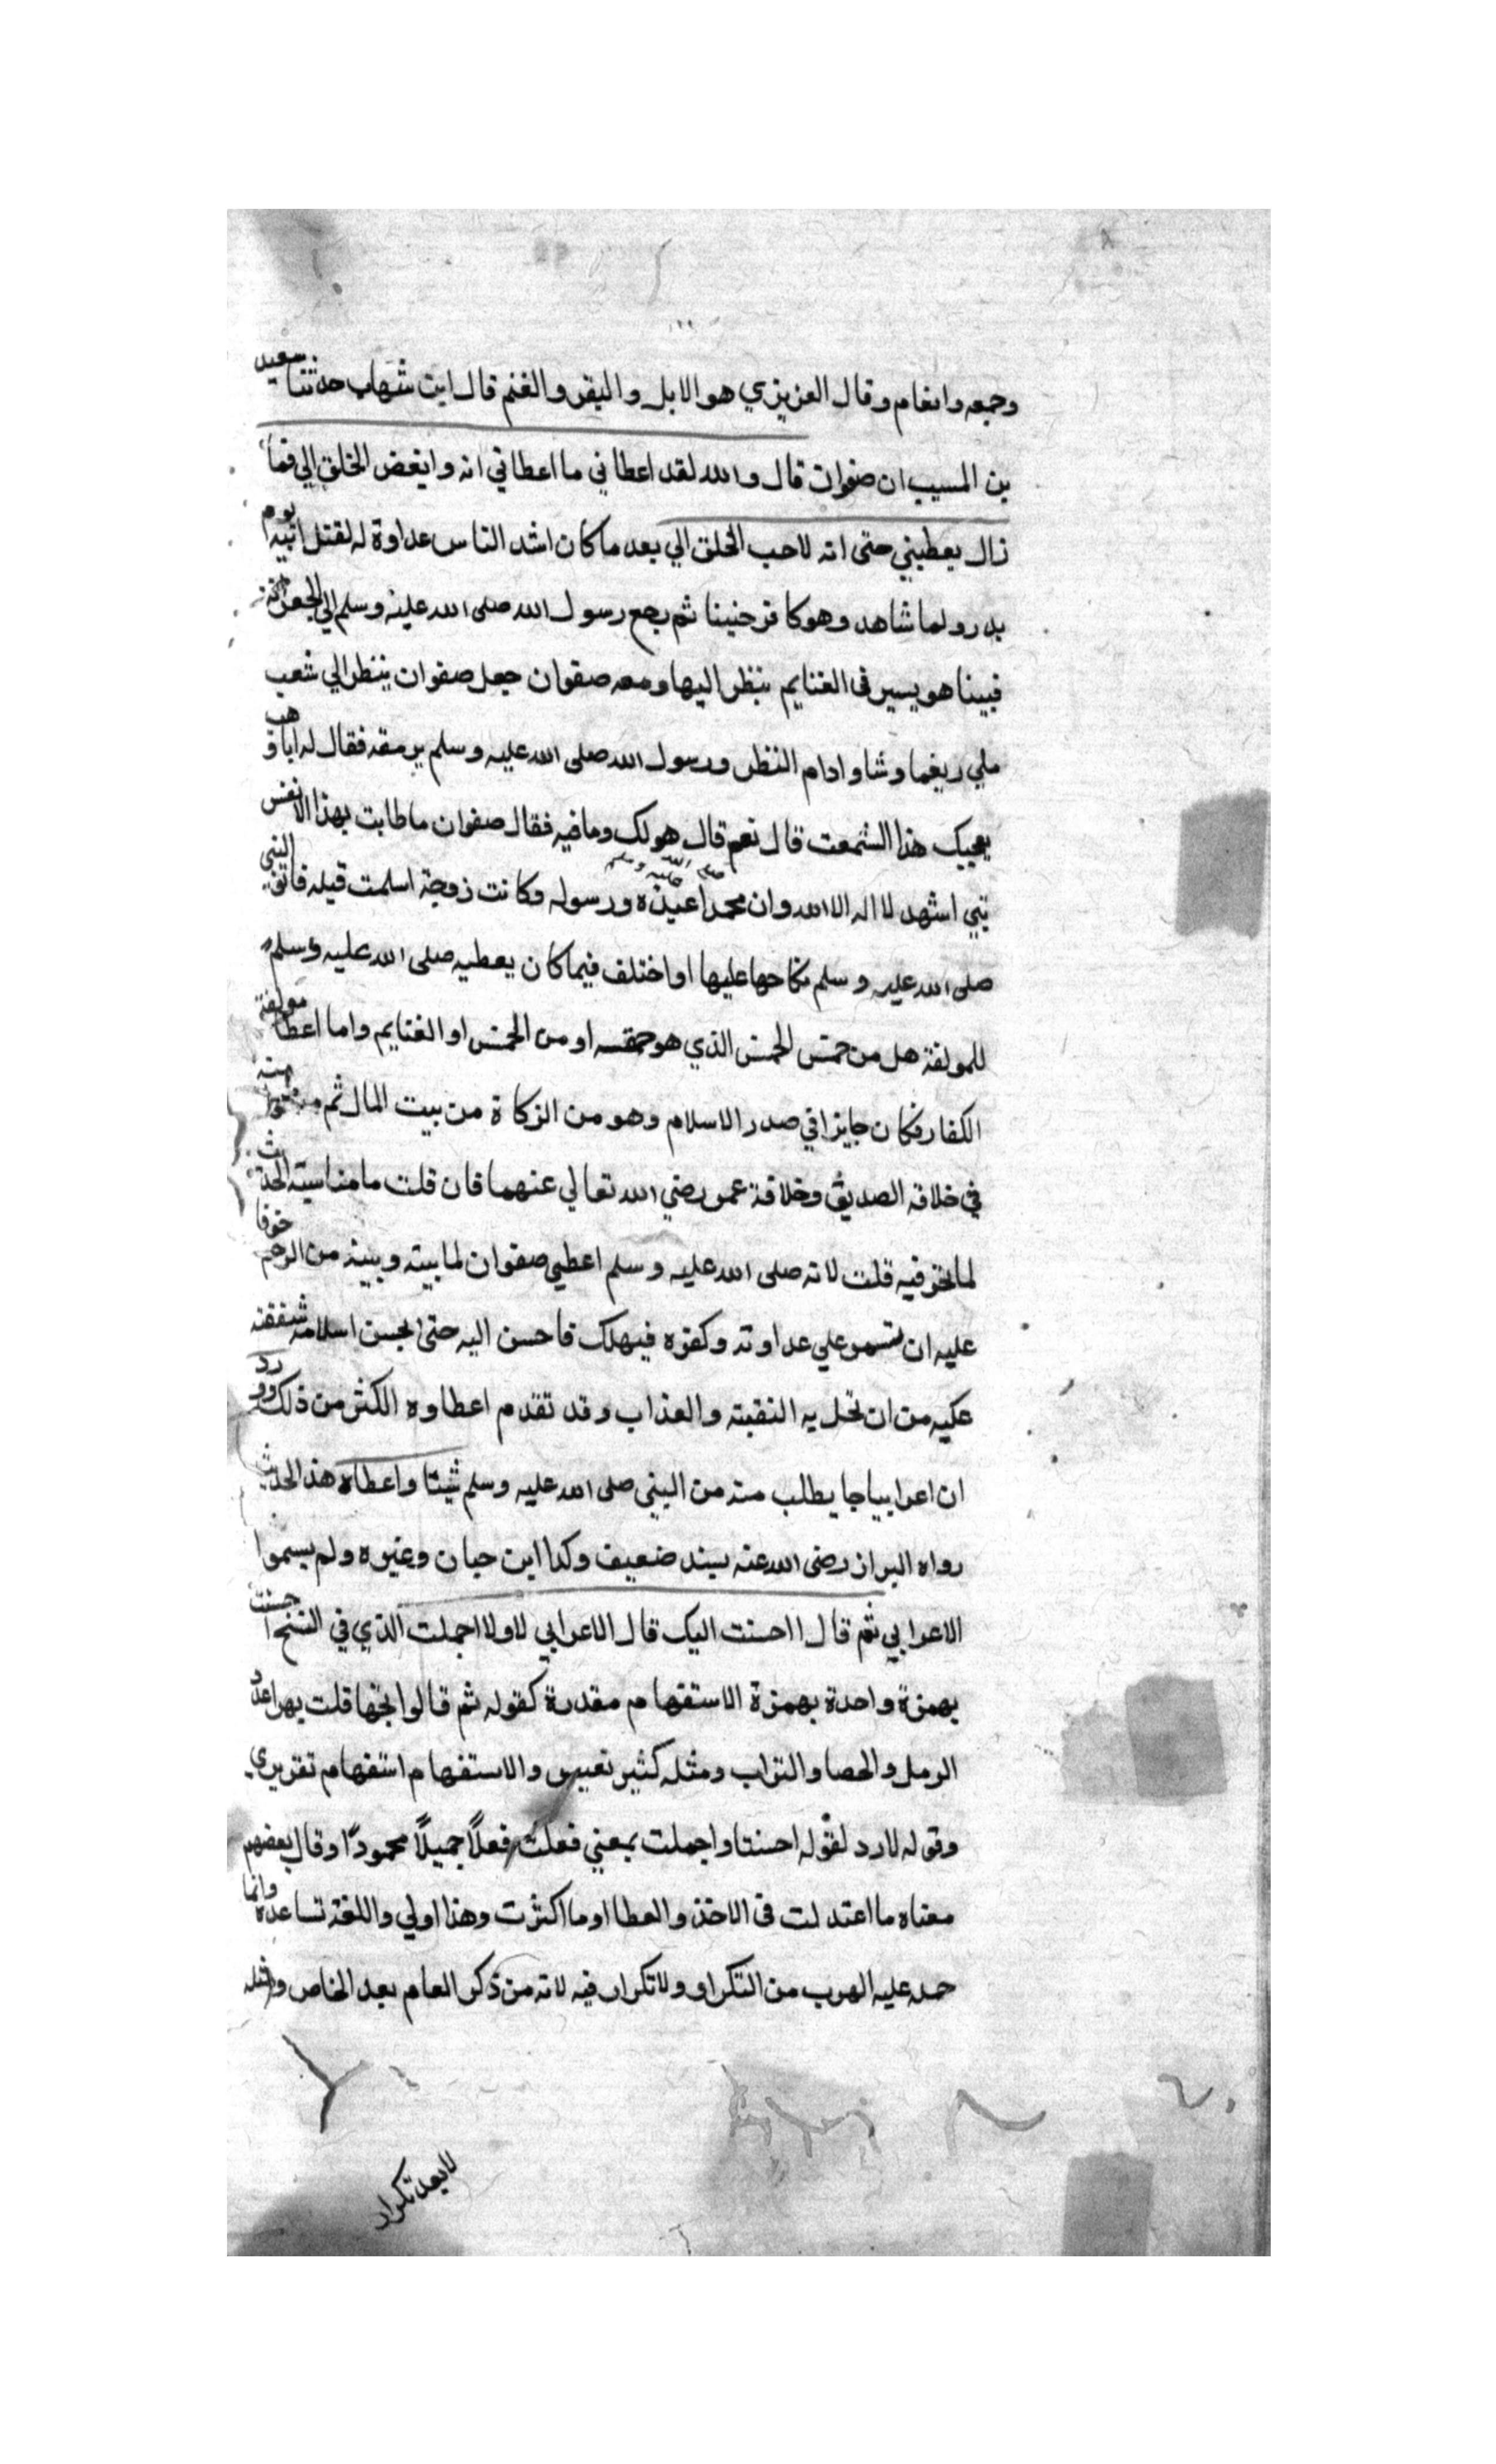 وجمعه وانعام وقال العزيزي هو الابل والبقر والغنم قال ابن شهاب حدثنا سعيد
بن المسيب ان صفوان قال والله لقد اعطاني ما اعطاني انه وابغض الخلق الي فما
زال يعطيني حتى انه لاحب الخلق الي بعد ما كان اشد الناس عداوة له لقتل ابيه يوم
بدر ولما شاهد وهو كافر حنينا ثم رجع رسول الله صلى الله عليه وسلم الي الجعرانة
فبينا هو يسير في الغنايم ينظر اليها ومعه صفوان جعل صفوان ينظر الي شعب
ملي ونعما وشاوادام النظر ورسول الله صلى الله عليه وسلم يرمقه فقال له ابا وهب
يعجبك هذا الشعب قال نعم قال هو لك وما فيه فقال صفوان ما طابت بهذا الا نفس
نبي اشهد لا اله الا الله وان محمدا عبده ورسوله صلى الله عليه وسلم وكانت زوجته اسلمت قبله فابقي النبي
صلى الله عليه وسلم نكاحها عليها اواختلف فيما كان يعطيه صلى الله عليه وسلم
للمولفة هل من خمس الخمس الذي هو حقه او من الخمس او الغنايم واما اعطا مولفة
الكفار فكان جايزا في صدر الاسلام وهو من الزكاة من بيت المال ثم منعوا منه
في خلافه الصديق وخلافة عمر رضي الله تعالي عنهما فان قلت ما مناسبته الحديث
لما نحن فيه قلت لانه صلى الله عليه وسلم اعطي صفوان لما بينه وبينه من الرحم خوفا
عليه ان يستمر علي عداوته وكفره فيهلك فاحسن اليه حتى يحسن اسلامه شفقه
عليه من ان تحل به النقمة والعذاب وقد تقدم اعطاوه الكثر من ذلك وورد
ان اعرابيا جا يطلب منه من النبي صلى الله عليه وسلم شيئا واعطاه هذا الحديث
رواه البزاز رضى الله عنه بسند ضعيف وكذا ابن حبان وغيره ولم يسموا
الاعرابي ثم قال ااحسنت اليك قال الاعرابي لا ولا اجملت الذي في النسخ احسنت
بهمزة واحدة بهمزة الاستفهام مقدرة كقوله ثم قالوا تحبها قلت بهرا عدد
الرمل والحصا والتراب ومثله كثير نفيس والاستفهام استفهام تقريري
وقوله لا رد لقوله احسنتا واجملت بمعني فعلت فعلاً جميلاً محمودًا وقال بعضهم
معناه ما اعتدلت في الاخذ والعطا او ما اكثرت وهذا اولي واللغة تساعده وانما
حمله عليه الهرب من التكراو ولا تكرار فيه لانه من ذكر العام بعد الخاص ومثله
لا يعد تكرار